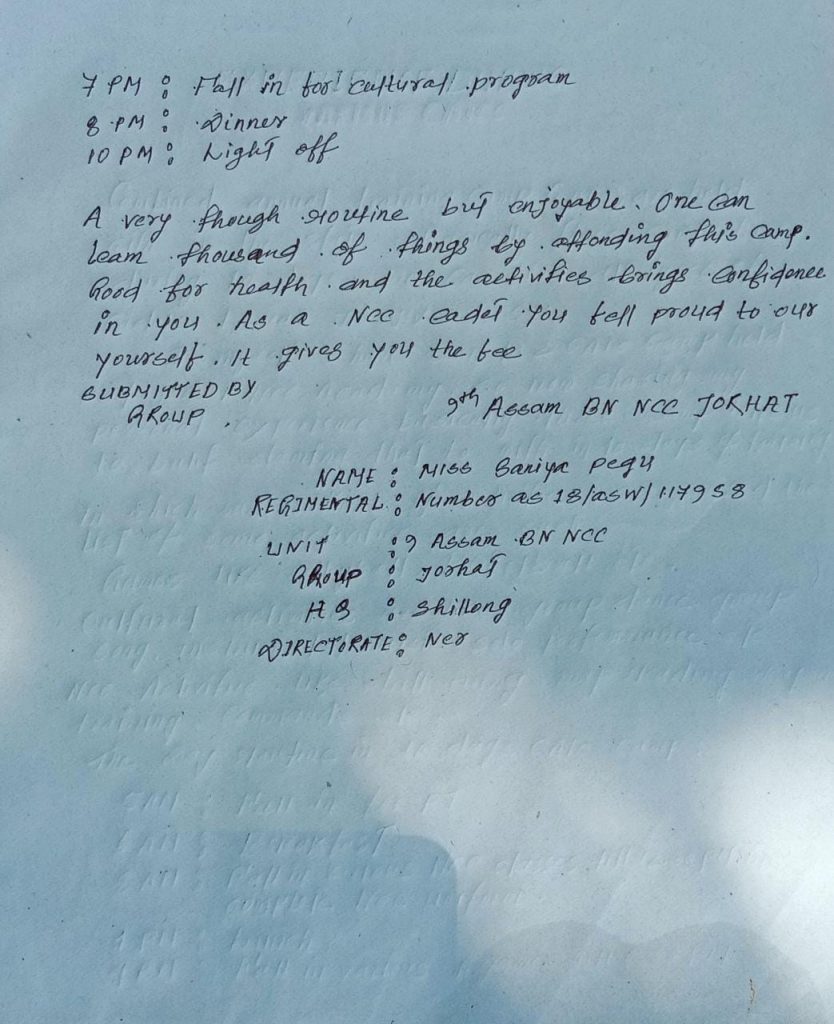 7 PM : Fall in for cultural program
8 PM : Dinner
10 PM : Light off
A very though routine but enjoyable. One can
learn thousand of things by attending this camp.
Good for health and the activities brings confidence
in you. As a NCC cadet you fell proud to our
yourself. It gives you the fee
SUBMITTED BY
GROUP.
9th Assam BN NCC JORHAT
NAME : Miss Saniya Pegu
REGIMENTAL : Number as 18/asw/117958
UNIT : 9 Assam BN NCC
GROUP : Jorhat
HQ : Shillong
DIRECTORATE : Ner